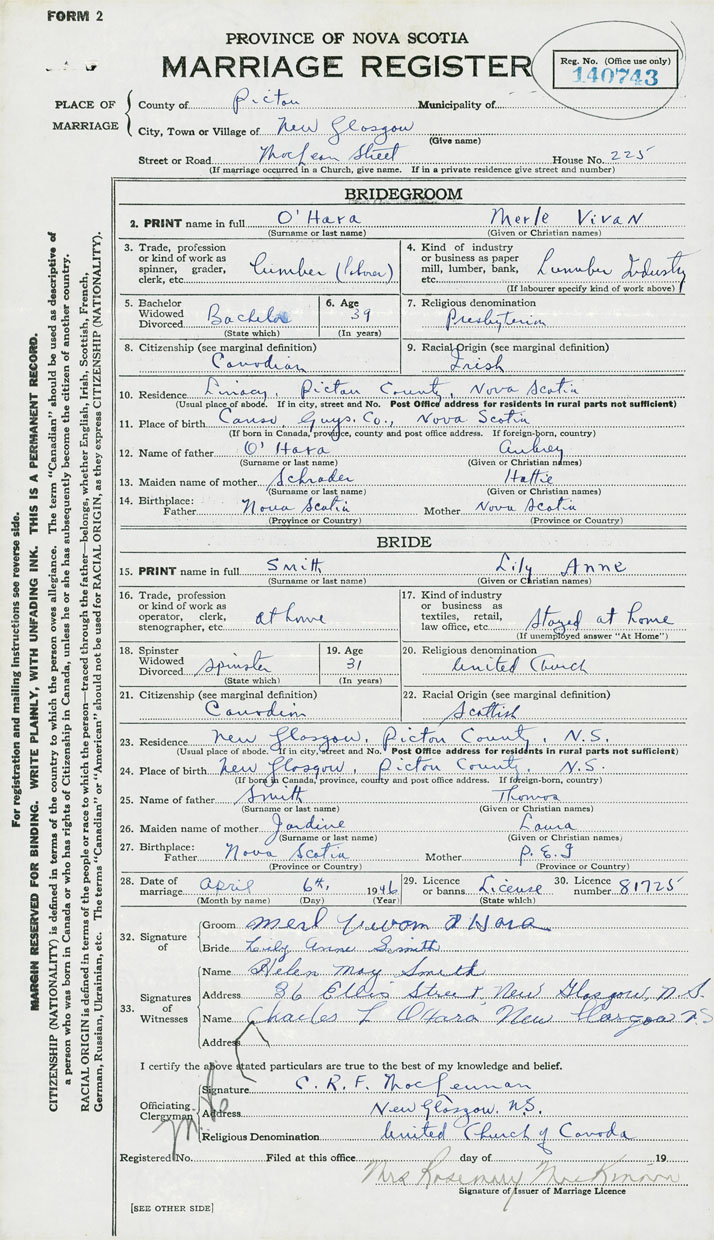 FORM 2
PROVINCE OF NOVA SCOTIA
MARRIAGE REGISTER
Reg. No. (Office use only)
140743
PLACE OF MARRIAGE
County of Pictou Municipality of
City, Town or Village of New Glasgow
(Give name)
Street or Road MacLean Street House No. 225
(If marriage occurred in a Church, give name. If in a private residence give street and number)
BRIDEGROOM
2. PRINT name in full O'Hara Merle Vivan
(Surname or last name) (Given or Christian names)
3. Trade, profession or kind of work as spinner, grader, clerk, etc. Lumber (Laborer)
4. Kind of industry or business as paper mill, lumber, bank, etc. Lumber Industry
(If labourer specify kind of work above)
5. Bachelor Widowed Divorced Bachelor
(State which)
6. Age 39
(In years)
7. Religious denomination Presbyterian
8. Citizenship (see marginal definition) Canadian
9. Racial Origin (see marginal definition) Irish
10. Residence Linacy, Pictou County, Nova Scotia
(Usual place of abode. If in city, street and No. Post Office address for residents in rural parts not sufficient)
11. Place of birth Canso, Guys. Co., Nova Scotia
(If born in Canada, province, county and post office address. If foreign-born, country)
12. Name of father O'Hara Aubrey
(Surname or last name) (Given or Christian names)
13. Maiden name of mother Schrader Hattie
(Surname or last name) (Given or Christian names)
14. Birthplace: Father Nova Scotia Mother Nova Scotia
(Province or Country) (Province or Country)
BRIDE
15. PRINT name in full Smith Lily Anne
(Surname or last name) (Given or Christian names)
16. Trade, profession or kind of work as operator, clerk, stenographer, etc. at home
17. Kind of industry or business as textiles, retail, law office, etc. Stayed at home
(If unemployed answer "At Home")
18. Spinster Widowed Divorced Spinster
(State which)
19. Age 31
(In years)
20. Religious denomination United Church
21. Citizenship (see marginal definition) Canadian
22. Racial Origin (see marginal definition) Scottish
23. Residence New Glasgow, Pictou County, N.S.
(Usual place of abode. If in city, street and No. Post Office address for residents in rural parts not sufficient)
24. Place of birth New Glasgow, Pictou County, N.S.
(If born in Canada, province, county and post office address. If foreign-born, country)
25. Name of father Smith Thomas
(Surname or last name) (Given or Christian names)
26. Maiden name of mother Jardine Laura
(Surname or last name) (Given or Christian names)
27. Birthplace: Father Nova Scotia Mother P.E.I
(Province or Country) (Province or Country)
28. Date of marriage April 6th, 1946
(Month by name) (Day) (Year)
29. Licence or banns License
(State which)
30. Licence number 81725
32. Signature of
Groom Merl Vivan O Hara
Bride Lily Anne Smith
33. Signatures of Witnesses
Name Helen May Smith
Address 86 Ellis Street, New Glasgow, N.S.
Name Charles L O'Hara New Glasgow N S
Address
I certify the above stated particulars are true to the best of my knowledge and belief.
Officiating Clergyman
Signature C. R. F. MacLennan
Address New Glasgow. N.S.
Religious Denomination United Church of Canada
Registered No. Filed at this office day of 19
Mrs Rosemary MacKinnon
Signature of Issuer of Marriage Licence
[SEE OTHER SIDE]
For registration and mailing instructions see reverse side.
MARGIN RESERVED FOR BINDING. WRITE PLAINLY, WITH UNFADING INK. THIS IS A PERMANENT RECORD.
CITIZENSHIP (NATIONALITY) is defined in terms of the country to which the person owes allegiance. The term "Canadian" should be used as descriptive of
a person who was born in Canada or who has rights of Citizenship in Canada, unless he or she has subsequently become the citizen of another country.
RACIAL ORIGIN is defined in terms of the people or race to which the person—traced through the father—belongs, whether English, Irish, Scottish, French,
German, Russian, Ukrainian, etc. The terms "Canadian" or "American" should not be used for RACIAL ORIGIN, as they express CITIZENSHIP (NATIONALITY).